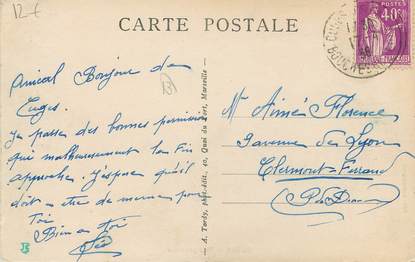 12 €
CARTE POSTALE
40c
Amical Bonjour de
Cuges.
J'y passe des bonnes permissions
qui malheureusement la Fin
approche. J'espère qu'il
doit être de meme pour
Toi
Bien a toi
A. Tardy, phot.-édit., 40, Quai du Port, Marseille
Mr Aimé Florence
Taverne de Lyon
Clermont-Ferrand
(P. de Dome)